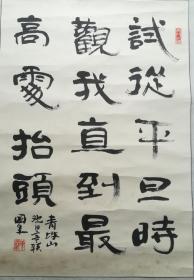 試從平旦時
觀我直到最
高處抬頭
青城山